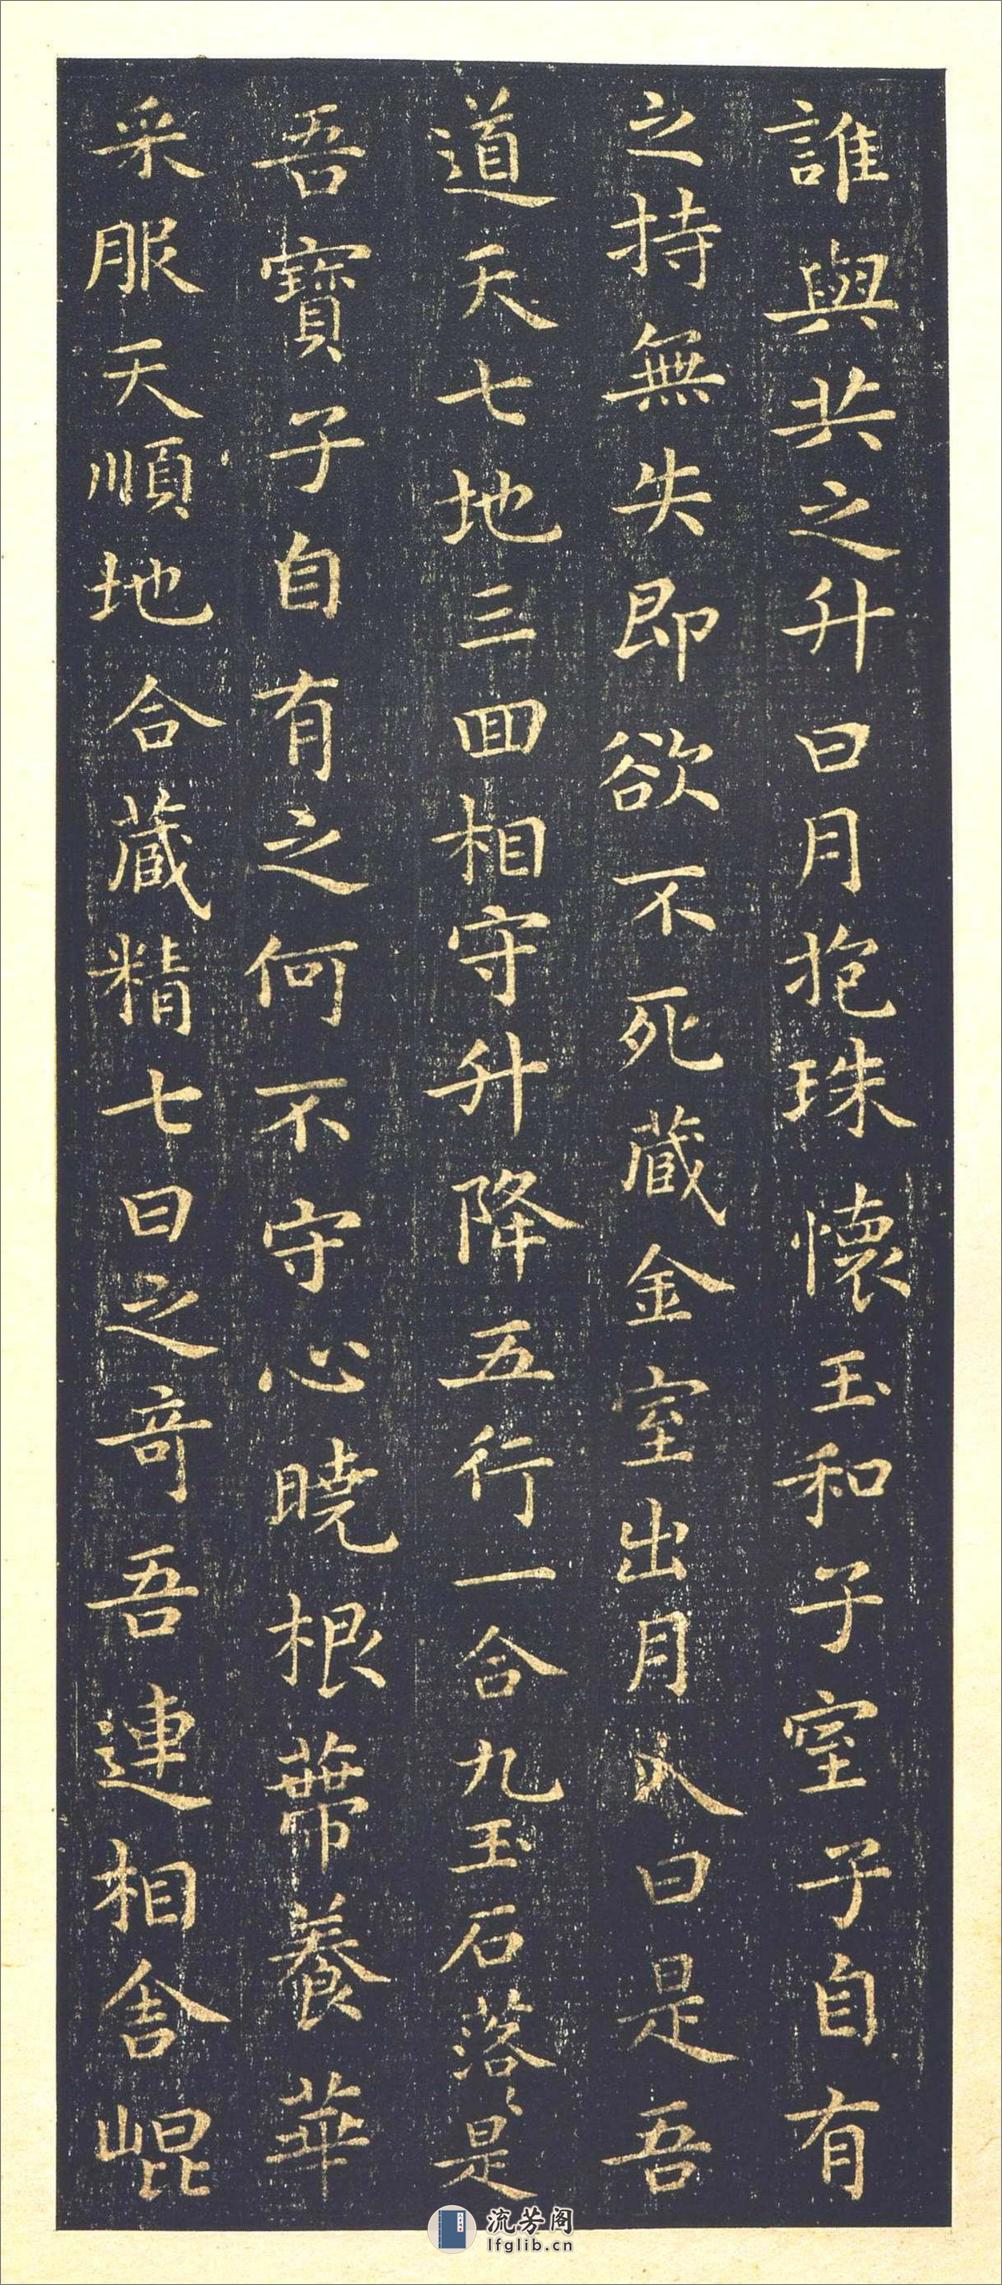 誰與共之升日月抱珠懷玉和子室子自有
之持無失即欲不死藏金室出月入日是吾
道天七地三回相守升降五行一合九玉石落〻是
吾寶子自有之何不守心曉根蔕養華
采服天順地合藏精七日之奇吾連相舍崐
流芳阁
lfglib.cn